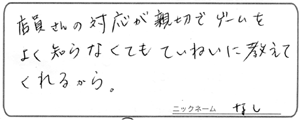 店員さんの対応が親切でゲームを
よく知らなくてもていねいに教えて
くれるから。
ニックネーム なし